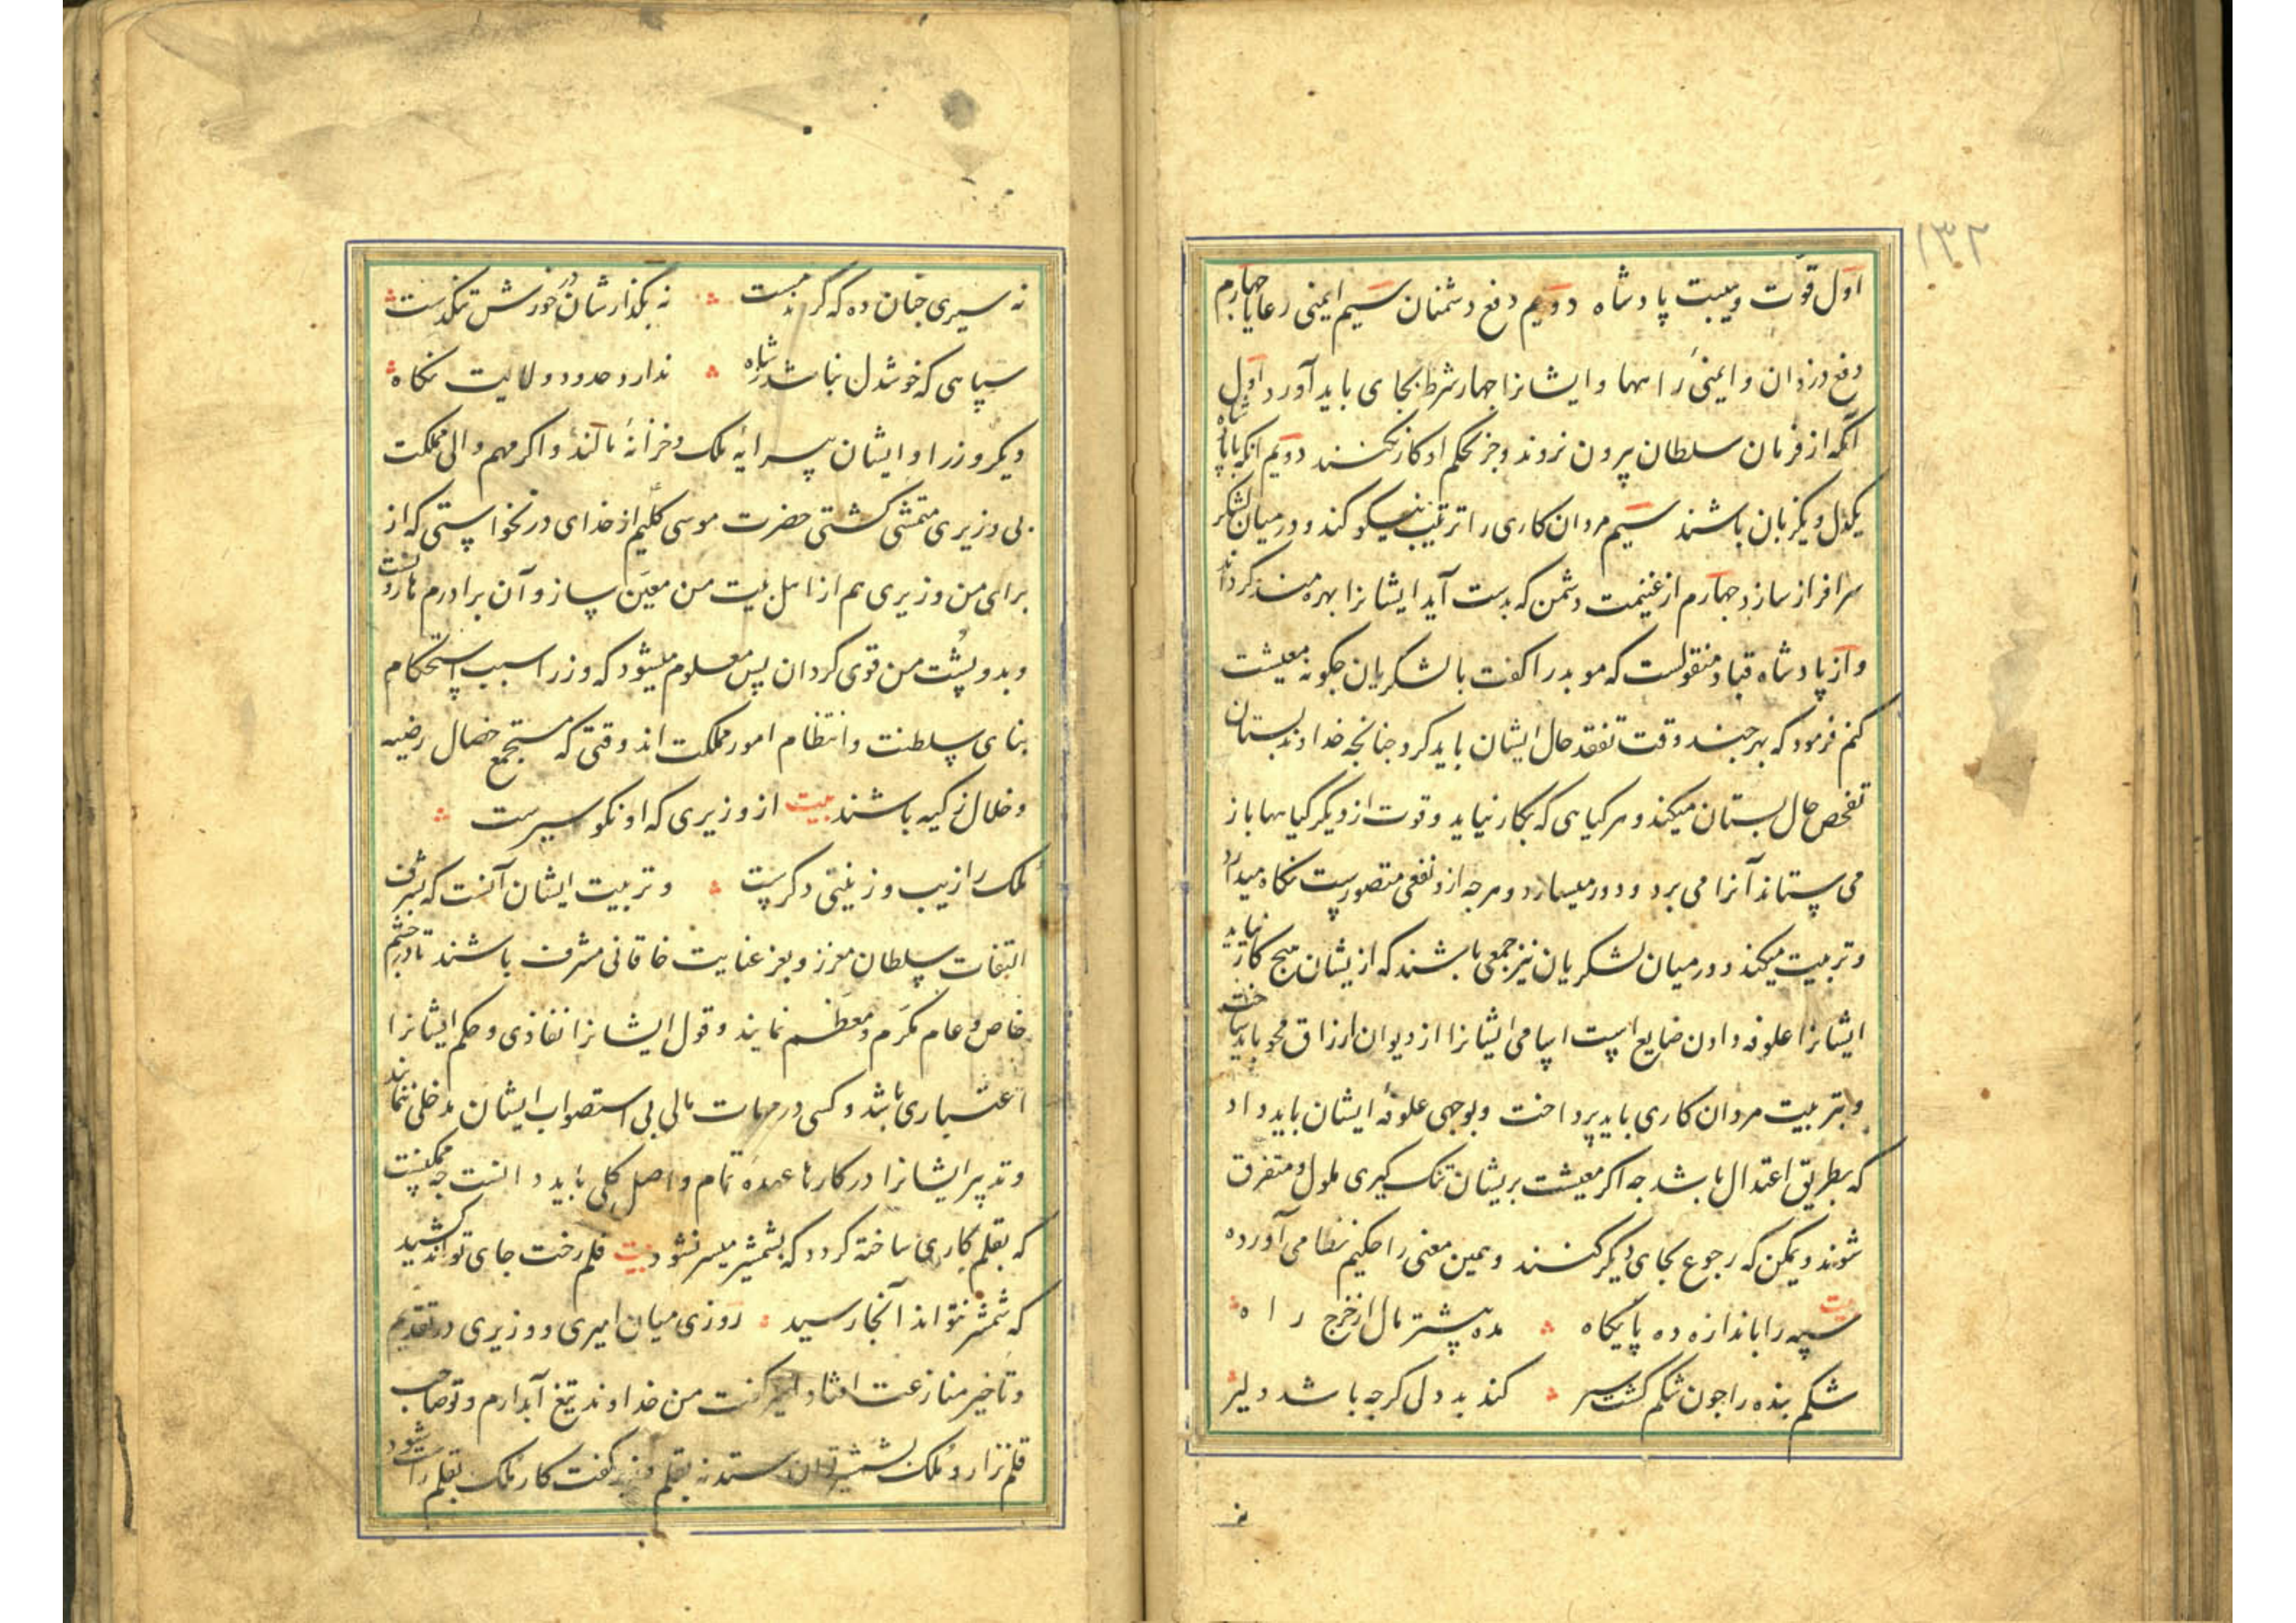 ۱۳۲
اول قوت و هیبت پادشاه دویم دفع دشمنان سیم ایمنی رعایا چهارم
دفع دزدان و ایمنی راهها و ایشانرا چهار شرط بجای باید آورد اول
آنکه از فرمان سلطان بیرون نروند و جز بحکم او کار نکنند دویم آنکه با پادشاه
یکدل و یکزبان باشند سیم مردان کاری را ترتیب نیکو کند و در میان لشکر
سرافراز سازد چهارم از غنیمت دشمن که بدست آید ایشانرا بهره مند گرداند
و از پادشاه قباد منقولست که موبد را گفت با لشکریان چگونه معیشت
کنم فرمود که بهر چند وقت تفقد حال ایشان باید کرد چنانچه خداوند بستان
تفحص حال بستان میکند و هر گیاهی که بکار نیاید و قوت از دیگر گیاهها باز
می ستاند آنرا می برد و دور میسازد و هر چه ازو نفعی متصورست نگاه میدارد
و تربیت میکند و در میان لشکریان نیز جمعی باشند که ازیشان هیچ کار نیاید
ایشانرا علوفه دادن ضایع است اسامی ایشانرا از دیوان ارزاق محو باید ساخت
و بتربیت مردان کاری باید پرداخت و بوجهی علوفهٔ ایشان باید داد
که بطریق اعتدال باشد چه اگر معیشت بریشان تنک گیری ملول و متفرق
شوند و یمکن که رجوع بجای دیگر کنند و همین معنی را حکیم نظامی آورده
بیت سپه را باندازه ده پایگاه مده بیشتر مال از خرج راه
شکم بنده را چون شکم گشت سیر کند بد دلی گرچه باشد دلیر
نه سیری چنان ده که گردند مست نه بگذارشان در خورش تنگدست
سپاهی که خوشدل نباشد ز شاه ندارد حدود ولایت نگاه
دیگر وزرا و ایشان پیرایهٔ ملک و خزانهٔ مالند و اگر مهم والی مملکت
بی وزیری متمشی گشتی حضرت موسی کلیم از خدای درنخواستی که از
برای من وزیری هم از اهل بیت من معین ساز و آن برادرم هارونست
و بدو پشت من قوی گردان پس معلوم میشود که وزرا سبب استحکام
بنای سلطنت و انتظام امور مملکت اند وقتی که مستجمع خصال رضیه
و خلال زکیه باشند بیت از وزیری که او نکو سیرست
ملک را زیب و زینتی دگرست و تربیت ایشان آنست که بشرف
التفات سلطان معزز و بعز عنایت خاقانی مشرف باشند تا در چشم
خاص و عام مکرم و معظم نمایند و قول ایشانرا نفاذی و حکم ایشانرا
اعتباری باشد و کسی در مهمات مالی بی استصواب ایشان مدخلی ننماید
و تدبیر ایشانرا در کارها عمدهٔ تمام و اصل کلی باید دانست چه ممکنست
که بقلم کاری ساخته گردد که بشمشیر میسر نشود بیت قلم رخت جای تواند کشید
که شمشیر نتواند آنجا رسید روزی میان امیری و وزیری در تقدیم
و تاخیر منازعت افتاد امیر گفت من خداوند تیغ آبدارم و تو صاحب
قلم نزار و ملک بشمشیر توان ستد نه بقلم وزیر گفت کار ملک بقلم راست شود